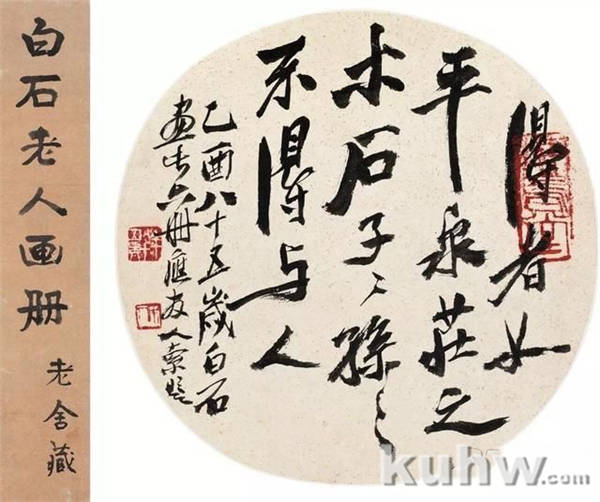 白石老人画册
老舍藏
得者如
平泉莊之
木石子〻孫〻
不得与人
乙酉八十五歲白石
畫六冊應友人索題
kuhw.com